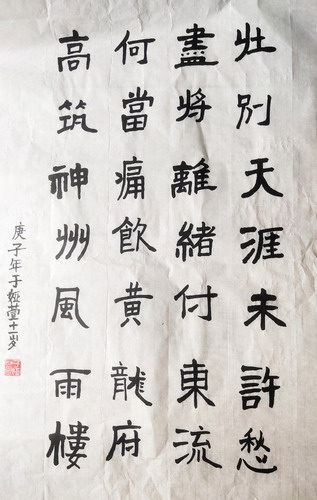 壯別天涯未許愁
盡将離緒付東流
何當痛飲黄龍府
高筑神州風雨樓
庚子年于娅萱十一岁